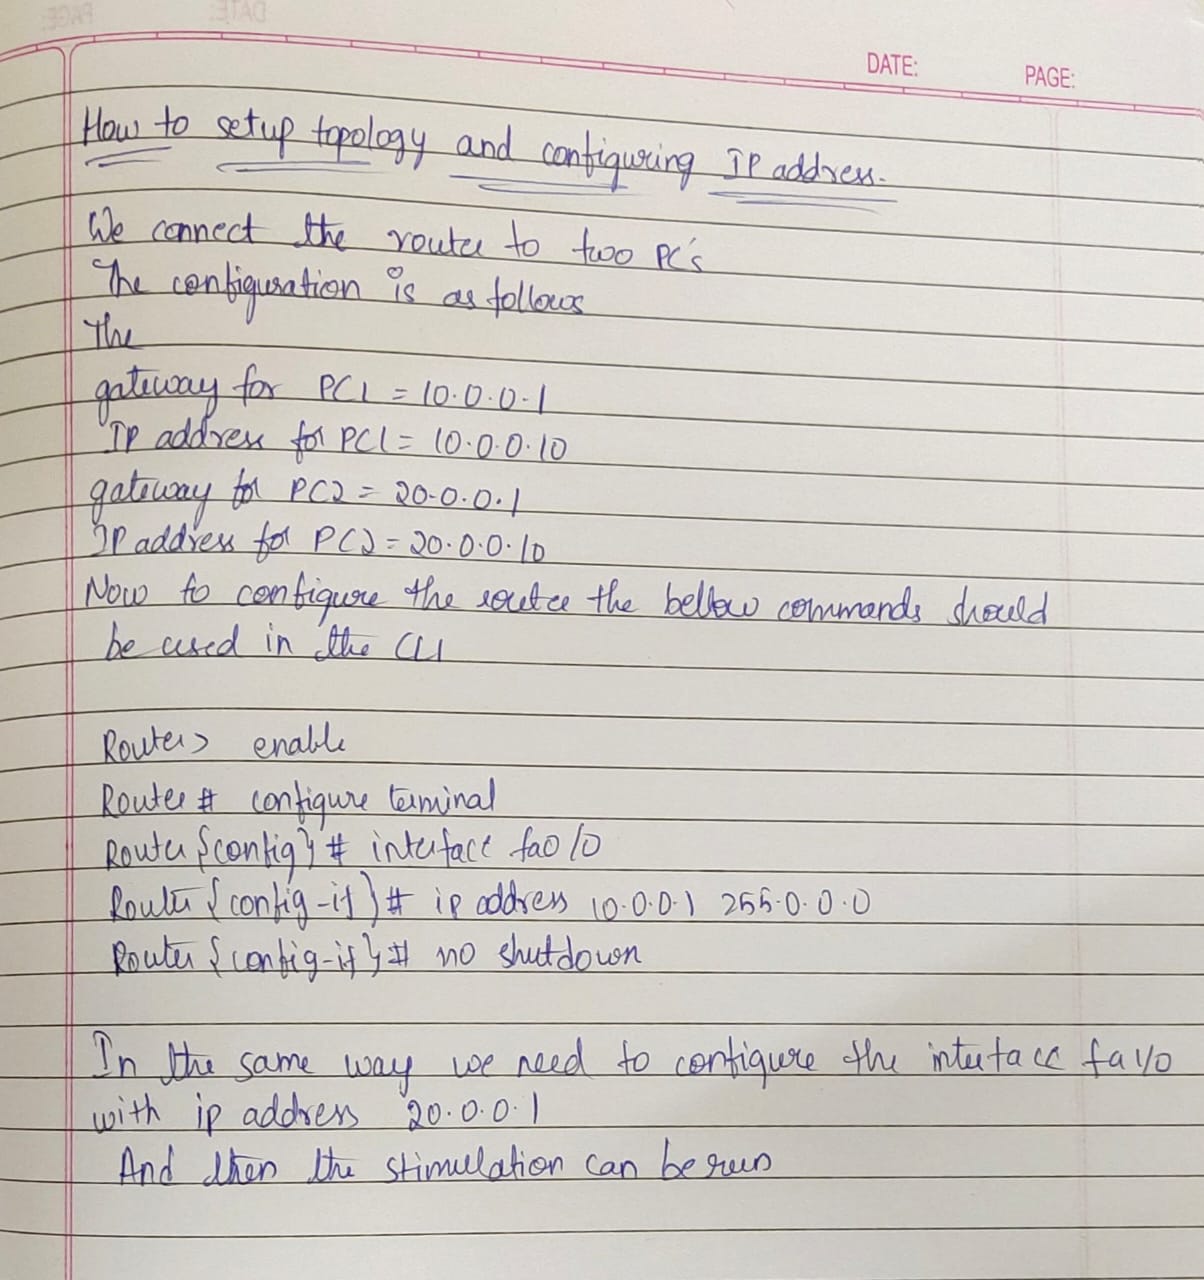 DATE:
PAGE:
How to setup topology and configuring IP address.
We connect the router to two PC's
The configuration is as follows
The
gateway for PC1 = 10.0.0.1
IP address for PC1 = 10.0.0.10
gateway for PC2 = 20.0.0.1
IP address for PC2 = 20.0.0.10
Now to configure the router the bellow commands should
be used in the CLI
Router> enable
Router # configure terminal
Router {config} # interface fa0/0
Router {config-if} # ip address 10.0.0.1 255.0.0.0
Router {config-if} # no shutdown
In the same way we need to configure the interface fa1/0
with ip address 20.0.0.1
And then the stimulation can be run